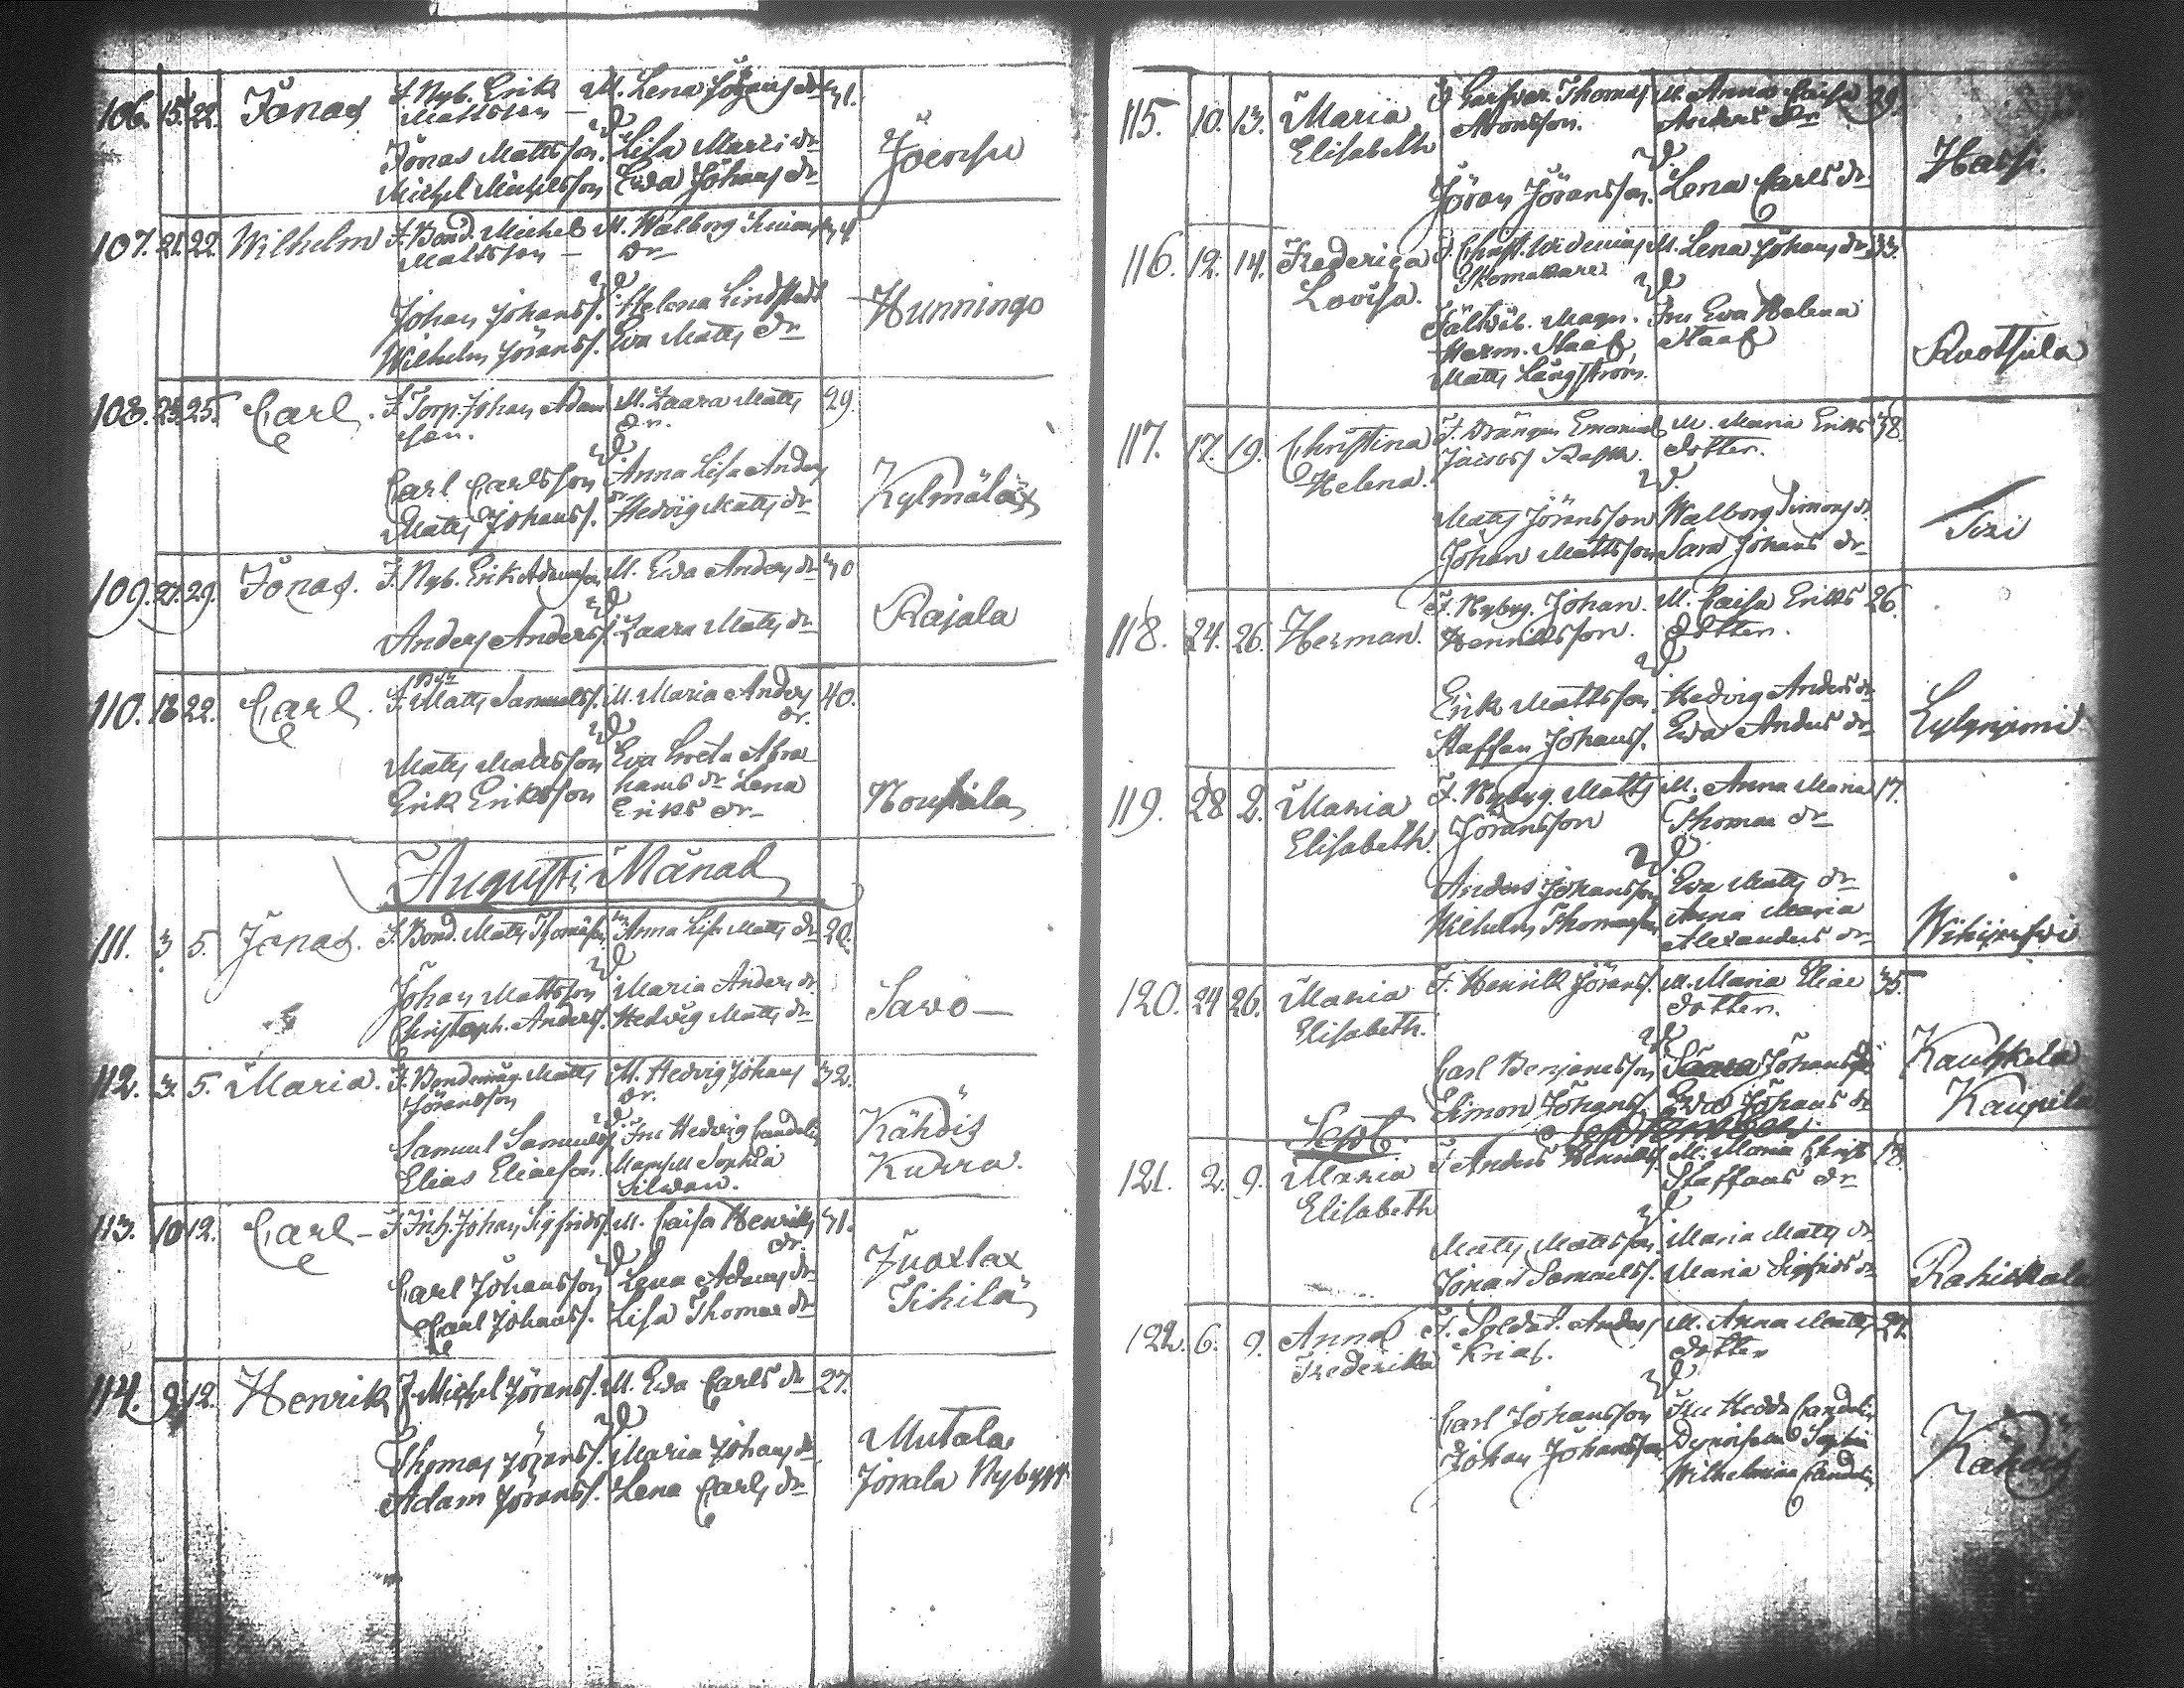 106. 15. 22. Jonas F. Nyb. Erik M. Lena Johans dr 31.
Mattsson —
Jonas Mattsson. Lisa Matts dr Joensu
Michel Michelsson Ewa Johans dr
107. 21. 22. Wilhelm F. Bond. Michel M. Walborg Simons
Mattsson — dr
Johan Johanss. Helena Lindstedt Hunningo
Wilhelm Jöranss. Ewa Matts dr
108. 23. 25. Carl. F. Torp. Johan Adam M. Zaara Matts 29.
son. dr.
Carl Carlsson Anna Lisa Anders Kylmälax
Matts Johanss. dr Hedvig Matts dr
109. 27. 29. Jonas. F. Nyb. Erik Adamsson M. Ewa Anders dr 30
Anders Anderss. Zaara Matts dr Rajala
110. 18 22. Carl. F. Matts Samuelss. M. Maria Anders 40.
dr.
Matts Mattsson Eva Greta Abra
Erik Eriksson hams dr Lena Nouhiala
Eriks dr
Augusti Månad
111. 3. 5. Jonas. F. Bond. Matts Thomasson M. Anna Lisa Matts dr 28.
Johan Mattsson Maria Anders dr Savo —
Christoph. Anderss. Hedvig Matts dr
112. 3. 5. Maria. F. Bondemåg. Matts M. Hedvig Johans 32.
Jöransson dr.
Samuel Samuelss. Fru Hedvig Candelin Kähöis
Elias Eliasson. Mamsell Sophia Kurra.
Silwan.
113. 10 12. Carl — F. Inh. Johan Sigfridss. M. Caisa Henriks 31.
dr.
Carl Johansson Lena Adams dr Juoxlax
Carl Johanss. Lisa Thomas dr Kihilä
114. 9. 12. Henrik F. Michel Jöranss. M. Ewa Carls dr 27.
Thomas Jöranss. Maria Johans dr Mutala
Adam Jöranss. Lena Carls dr Jonala Nybygg
115. 10. 13. Maria F. Garfvar. Thomas M. Anna Caisa 29.
Elisabeth Aronsson. Anders dr
Jöran Jöransson. Lena Carls dr Hassi.
116. 12. 14. Frederica F. Christ. Widenius M. Lena Johans dr 33.
Lovisa. Skomakare
Fältväb. Magn. Fru Eva Helena
Herm. Staaf, Staaf Rootsula
Matts Långström.
117. 17. 19. Christina F. Drängen Emanuel M. Maria Eriks 38.
Helena. Jacobss Rask. dotter.
Matts Jöransson Walborg Simons dr Sixi
Johan Mattsson Sara Johans dr
118. 24. 26. Herman. F. Nybyg. Johan M. Caisa Eriks 26.
Henriksson. dotter.
Erik Mattsson. Hedvig Anders dr
Staffan Johanss. Ewa Anders dr Lylyniemi
119. 28 2. Maria F. Nybyg. Matts M. Anna Maria 17.
Elisabeth. Jöransson Thomas dr
Anders Johansson Ewa Matts dr
Wilhelm Thomasson Anna Maria
Alexanders dr
120. 24 26. Maria F. Henrik Jöranss. M. Maria Elias 35.
Elisabeth. dotter.
Carl Benjamsson Saara Johans dr Kauhkela
Simon Johanss. Ewa Johans dr Kaupila
Sept. September.
121. 2. 9. Maria F. Anders Henrikss. M. Maria Christ. 18.
Elisabeth Staffans dr
Matts Mattsson. Maria Matts dr
Jonas Samuelss. Maria Sigfrids dr Rahikkala
122. 6. 9. Anna F. Soldat. Anders M. Anna Matts 27.
Frederika Krias. dotter
Carl Johansson Fru Hedda Candelin
Johan Johansson. Sophia
Wilhelmina Candelin